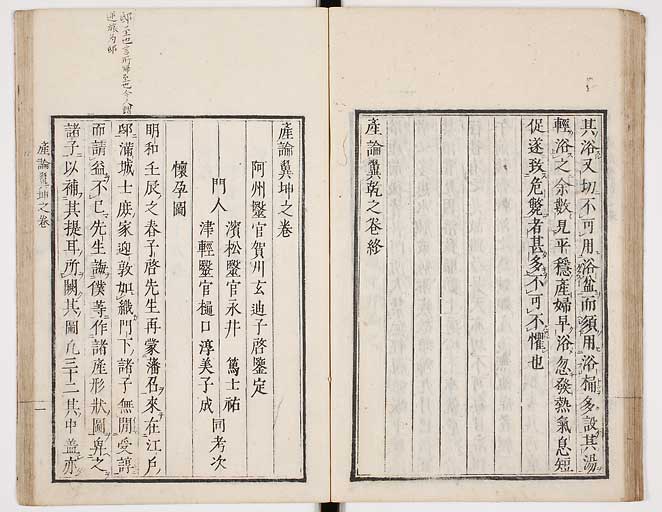 其浴又切不可用浴盆而須用浴桶多設其湯
輕浴之余數見平穩產婦早浴忽發熱氣息短
促遂致危斃者甚多不可不懼也
產論翼乾之卷終
產論翼坤之卷
阿州醫官賀川玄迪子啓鑒定
門人
濱松醫官永井 篤士祐
津輕醫官樋口淳美子成
同考次
懷孕圖
明和壬辰之春子啓先生再蒙藩召來在江戶
邸滿城士庶家迎敦如織門下諸子無閒受諄
而請益不已先生誨僕等作諸產形狀圖卑之
諸子以補其提耳所闕其圖凡三十二其中蓋亦
產論翼坤之卷
一